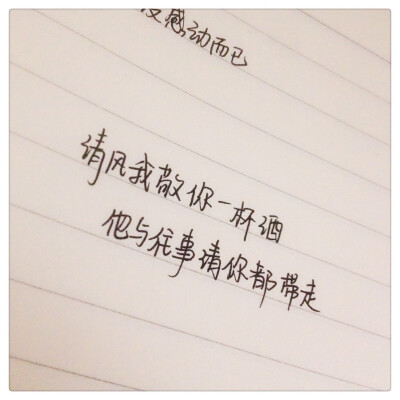 感动而已
清风我敬你一杯酒
他与往事请你都带走